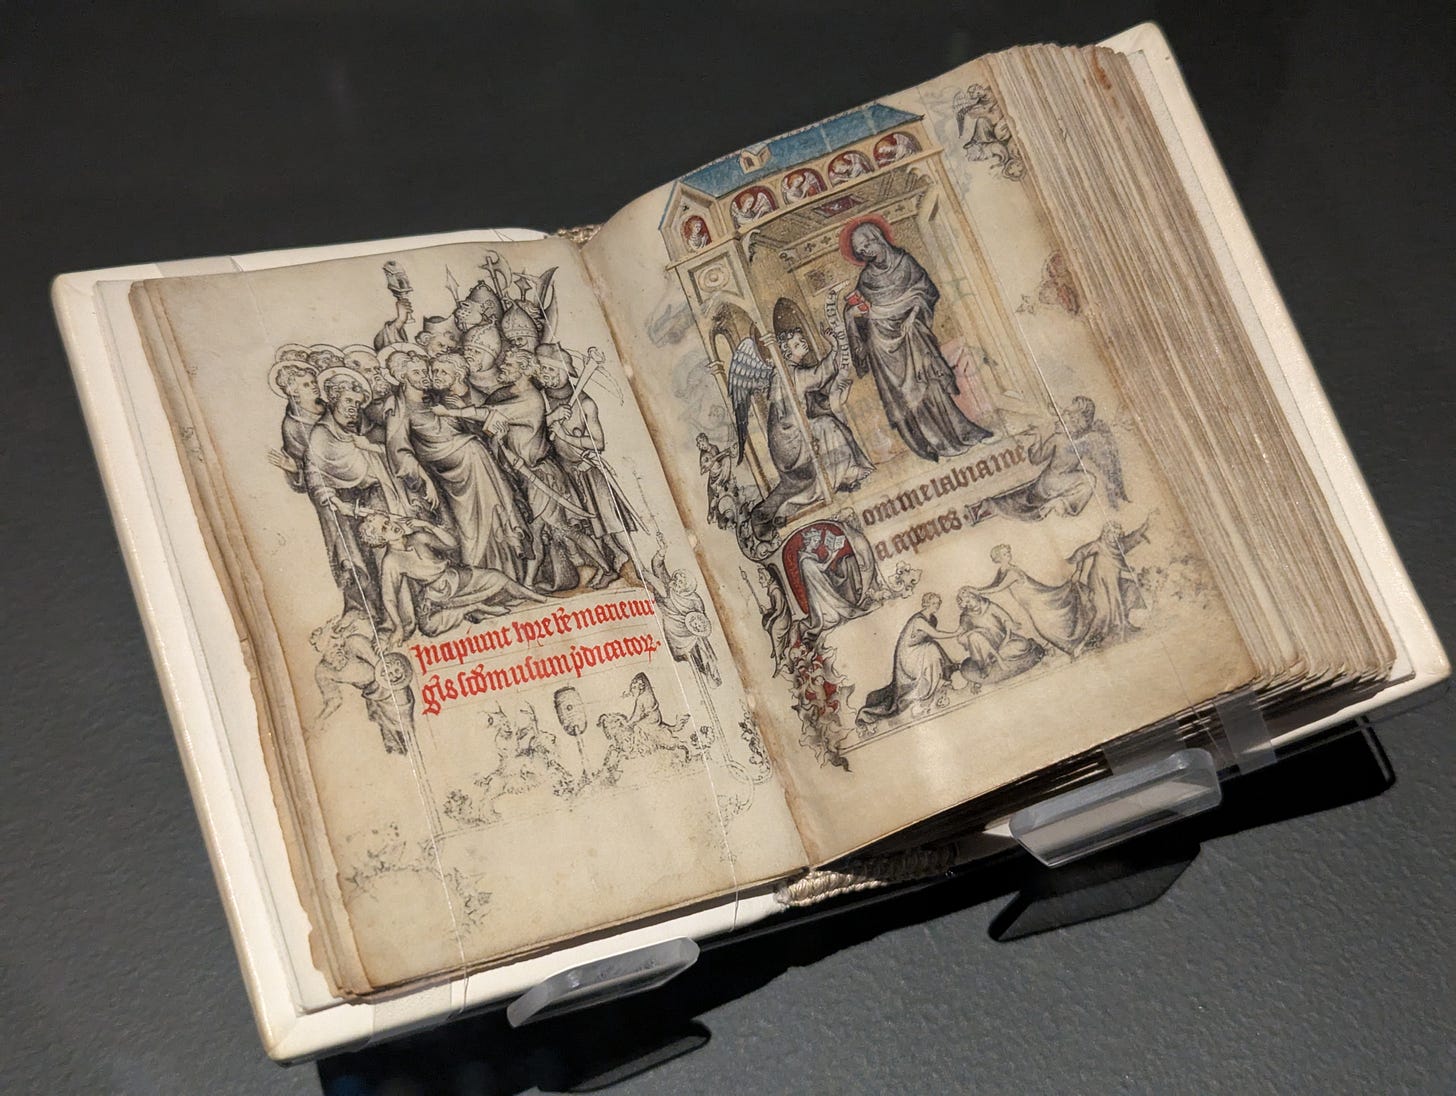 Incipiunt hore bte marie uir
gis scdm usum pdicator.
Domine labia me
a aperies.